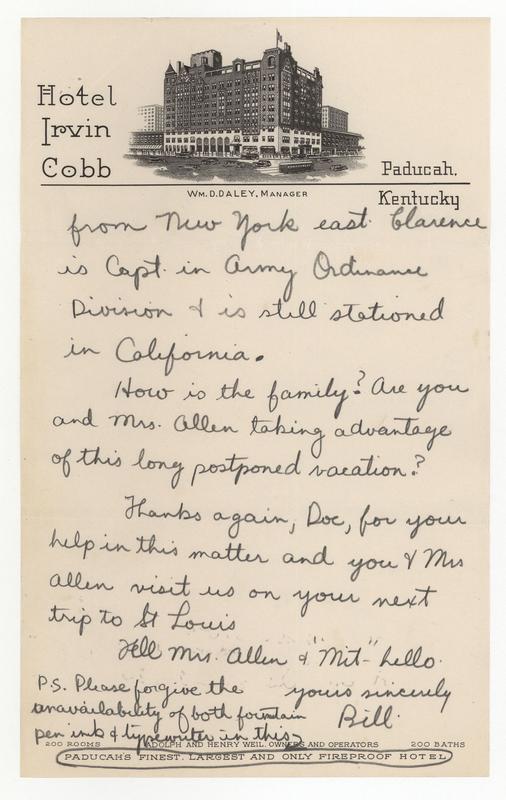 Hotel
Irvin
Cobb
Paducah,
Wm. D. DALEY, MANAGER
Kentucky
from New York east. Clarence
is Capt. in Army Ordinance
Division & is still stationed
in California.
How is the family? Are you
and Mrs. Allen taking advantage
of this long postponed vacation?
Thanks again, Doc, for your
help in this matter and you & Mrs
Allen visit us on your next
trip to St Louis
Tell Mrs. Allen & "Mit" hello.
yours sincerely
Bill.
P.S. Please forgive the
unavailability of both fountain
pen ink & typewriter in this
200 ROOMS ADOLPH AND HENRY WEIL, OWNERS AND OPERATORS 200 BATHS
PADUCAH'S FINEST, LARGEST AND ONLY FIREPROOF HOTEL